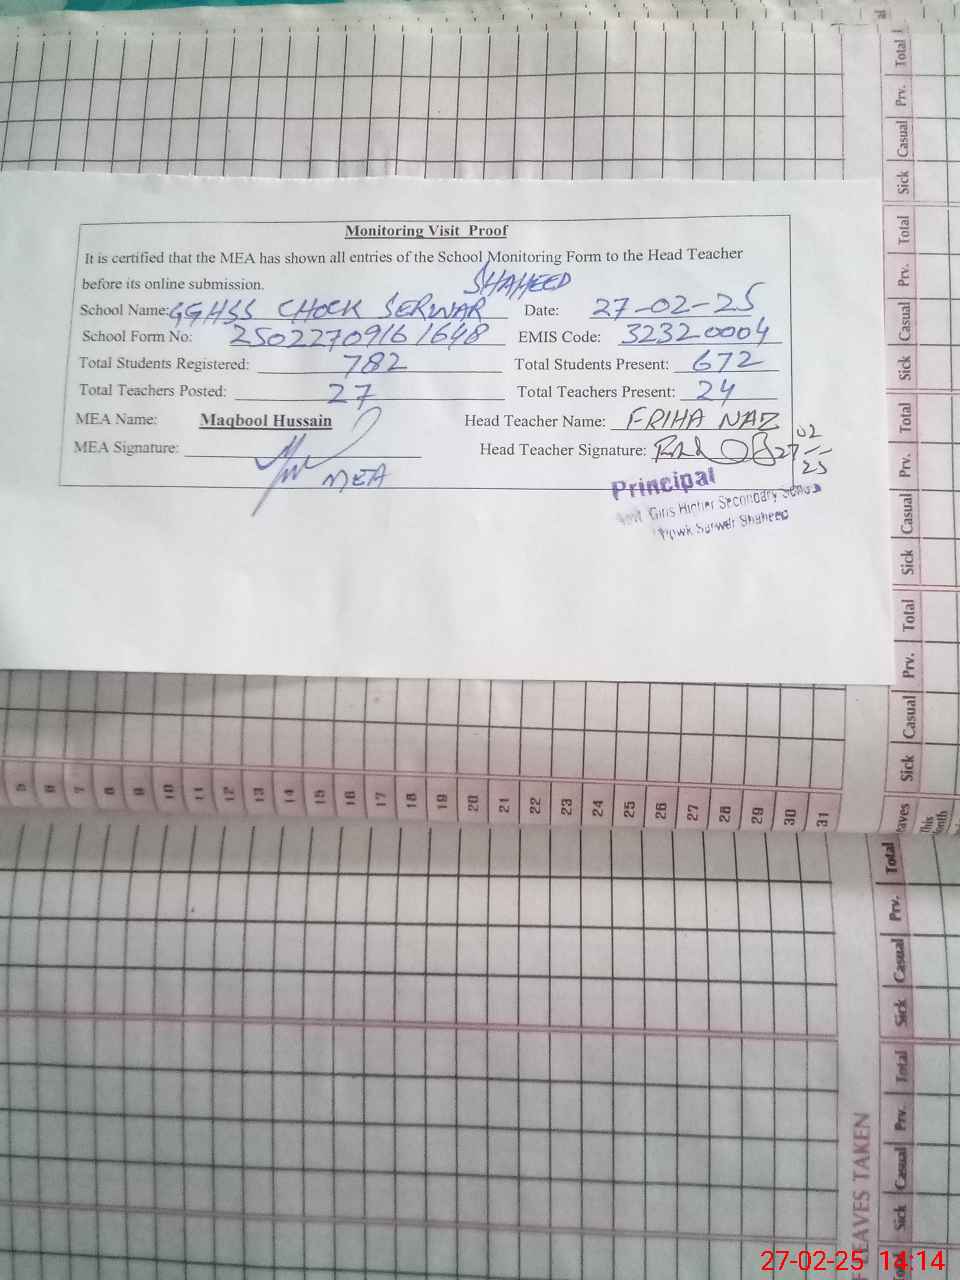 Monitoring Visit Proof
It is certified that the MEA has shown all entries of the School Monitoring Form to the Head Teacher
before its online submission.
SHAHEED
School Name: GGHSS CHOCK SERWAR Date: 27-02-25
School Form No: 2502270916 1648 EMIS Code: 32320004
Total Students Registered: 782 Total Students Present: 672
Total Teachers Posted: 27 Total Teachers Present: 24
MEA Name: Maqbool Hussain Head Teacher Name: FRIHA NAZ
MEA Signature: Head Teacher Signature: 27-02-25
MEA
Principal
Girls Higher Secondary
Sarwar Shaheed
Total Prv. Casual Sick
Total Prv. Casual Sick
Total Prv. Casual Sick
Total Prv. Casual Sick
5 6 7 8 9 10 11 12 13 14 15 16 17 18 19 20 21 22 23 24 25 26 27 28 29 30 31
This
Total Prv. Casual Sick
Total Prv. Casual Sick
LEAVES TAKEN
27-02-25 14:14